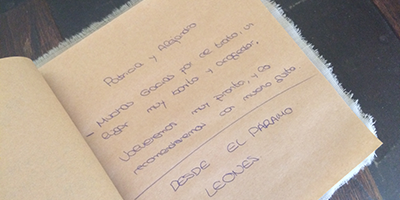 Patricia y Alejandro
- Muchas Gracias por el trato, un
lugar muy bonito y acogedor,
Volveremos muy pronto, y lo
recomendaremos con mucho gusto
DESDE EL PARAMO
LEONES